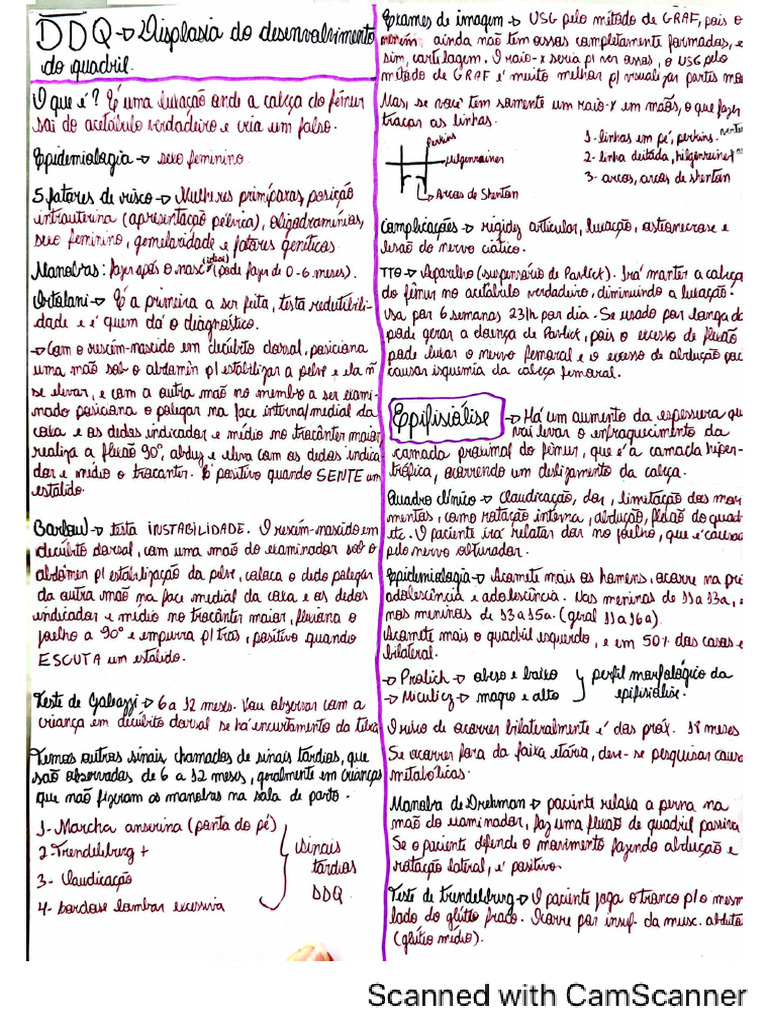 DDQ → Displasia do desenvolvimento
do quadril.
O que é? É uma luxação onde a cabeça do fêmur
sai do acetábulo verdadeiro e cria um falso.
Epidemiologia → sexo feminino.
5 fatores de risco → Mulheres primíparas, posição
intrauterina (apresentação pélvica), oligodramínios,
sexo feminino, gemelaridade e fatores genéticos.
Manobras: fazer após o nasc (ideal) (pode fazer de 0-6 meses).
Ortolani → É a primeira a ser feita, testa redutibili-
dade e é quem dá o diagnóstico.
→ Com o rescém-nascido em decúbito dorsal, posiciona
uma mão sob o abdomin p/ estabilizar a pelve e ela ñ
se elevar, e com a outra mão no membro a ser exami-
nado posiciona o polegar na face interna/medial da
coxa e os dedos indicador e médio no trocânter maior
realiza a flexão 90°, abduz e eleva com os dedos indica
dor e médio o trocanter. É positivo quando SENTE um
estalido.
Barlow → testa INSTABILIDADE. O rescém-nascido em
decúbito dorsal, com uma mão do examinador sob o
abdômen p/ estabilização da pelve, coloca o dedo polegar
da outra mão na face medial da coxa e os dedos
indicador e médio no trocânter maior, flexiona o
joelho a 90° e empurra p/ trás, positivo quando
ESCUTA um estalido.
Teste de Galeazzi → 6 a 12 meses. Vou observar com a
criança em decúbito dorsal se há encurtamento da tíbia
Temos outros sinais, chamados de sinais tardios, que
são observados de 6 a 12 meses, geralmente em crianças
que não fizeram as manobras na sala de parto.
1- Marcha anserina (ponta do pé)
2- Trendelburg +
3- Claudicação
4- Lordose lombar excessiva
Sinais
tardios
DDQ.
Exames de imagem → USG pelo método de GRAF, pois o
ainda não tem ossos completamente formados, e
sim, cartilagem. O raio-x seria p/ ver ossos, o USG pelo
método de GRAF é muito melhor p/ visualizar partes mo
Mas, se você tem somente um raio-x em mãos, o que fazer
traçar as linhas.
Perkins
Hilgenreiner
Arcos de Shenton
1- linhas em pé, perkins.
2- linha deitada, hilgenreiner
3- arcos, arcos de shenton
Complicações → rigidez articular, luxação, osteonecrose e
lesão do nervo ciático.
TTO → Aparelho (suspensório de Pavlick). Irá manter a cabeça
do fêmur no acetábulo verdadeiro, diminuindo a luxação.
Usa por 6 semanas 23/h por dia. Se usado por longa do
pode gerar a doença de Pavlick, pois o excesso de flexão
pode luxar o nervo femoral e o excesso de abdução pod
causar isquemia da cabeça femoral.
Epifisiólise → Há um aumento da espessura qu
vai levar o enfraquecimento da
camada proximal do fêmur, que é a camada hiper-
trófica, ocorrendo um deslizamento da cabeça.
Quadro clínico → Claudicação, dor, limitação dos movi
mentos, como rotação interna, abdução, flexão do quad
etc. O paciente irá relatar dor no joelho, que é causad
pelo nervo obturador.
Epidemiologia → Acomete mais os homens, ocorre na pré
adolescência e adolescência. Nas meninas de 11 a 13a, e
nos meninos de 13 a 15a. (geral 11 a 16a)
Acomete mais o quadril esquerdo, e em 50% dos casos e
bilateral.
→ Frolich → obeso e baixo
→ Miculicz → magro e alto
perfil morfológico da
epifisiólise.
O risco de ocorrer bilateralmente é dos próx. 18 meses
Se ocorrer fora da faixa etária, deve-se pesquisar causa
metabólicas.
Manobra de Drehman → paciente relaxa a perna na
mão do examinador, faz uma flexão de quadril passiva
Se o paciente defende o movimento fazendo abdução e
rotação lateral, é positivo.
Teste de Trendelburg → O paciente joga o tronco p/ o mesm
lado do glúteo fraco. Ocorre por insuf. da musc. abdutor
(glúteo médio).
Scanned with CamScanner